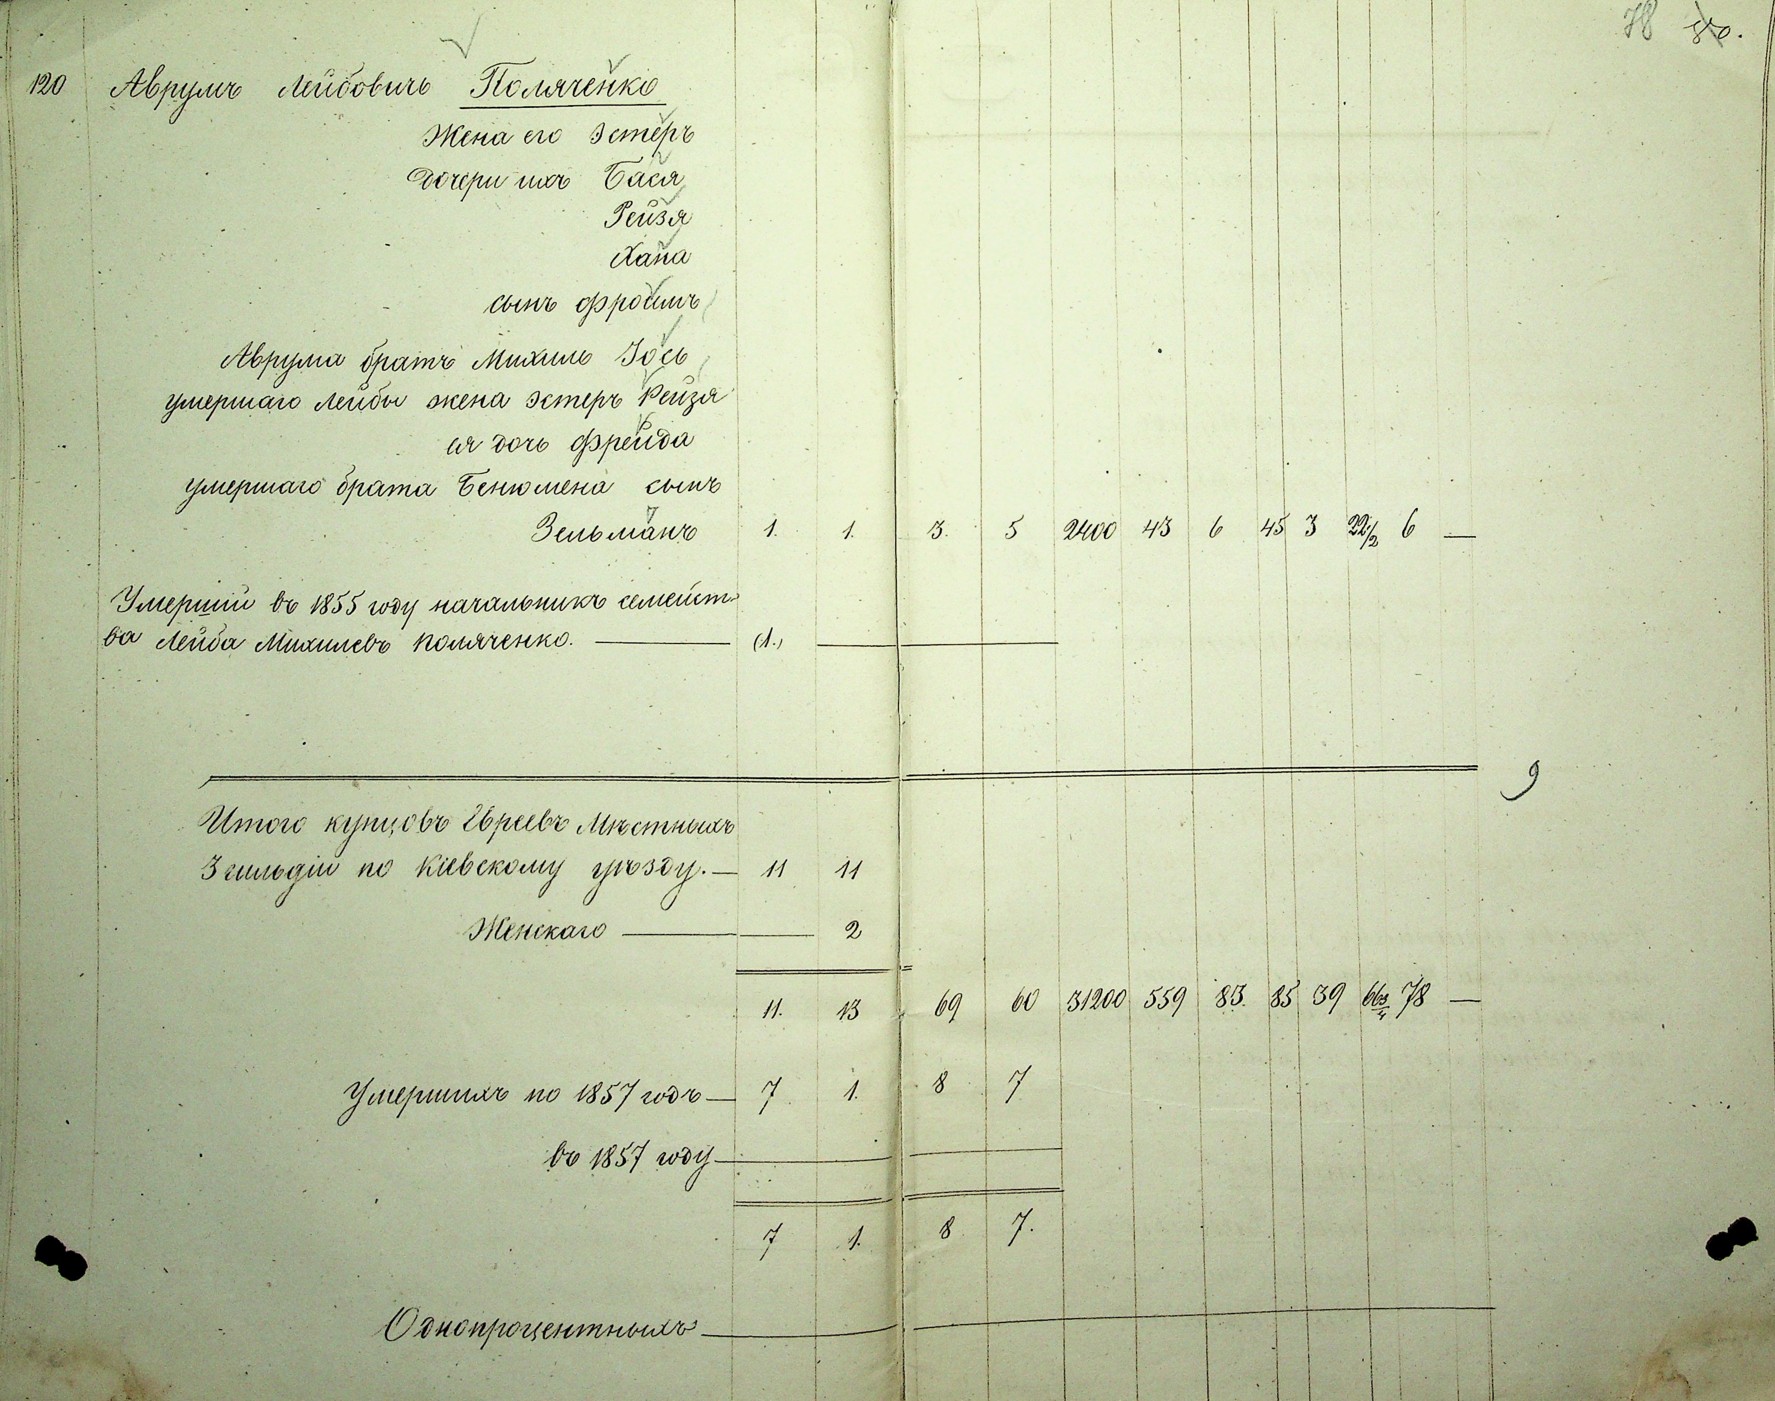 78 80.
120 Аврумъ Лейбовичъ Поляченко
Жена его Эстеръ
Дочери ихъ Бася
Рейзя
Хана
сынъ Фроимъ
Аврума братъ Михиль Іось
умершаго Лейбы жена Эстеръ Рейзя
ея дочь Фрейда
умершаго брата Бенюмена сынъ
Зельманъ 1. 1. 3. 5 2400 43 6 45 3 22 1/2 6 —
Умершій въ 1855 году начальникъ семейст-
ва Лейба Михилевъ Поляченко. — (1.) —
9
Итого купцовъ Евреевъ Мѣстныхъ
3 гильдіи по Кіевскому уѣзду. — 11 11
Женскаго — — 2
11. 13 69 60 31200 559 83. 85 39 66 3/4 78 —
Умершихъ по 1857 годъ — 7 1. 8 7
въ 1857 году —
7 1. 8 7.
Однопроцентныхъ —